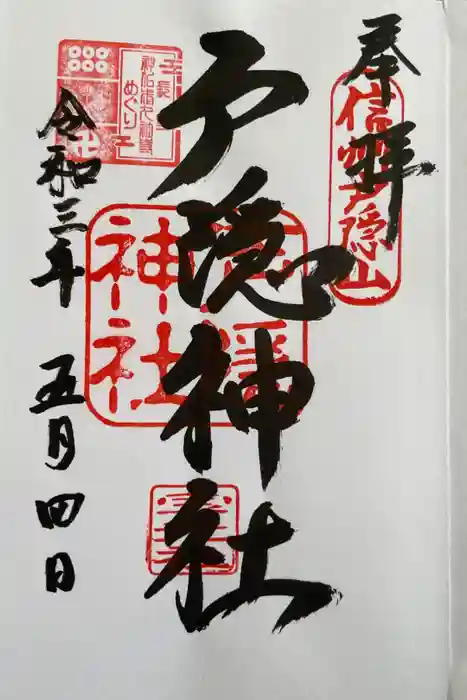 奉拝
信州戸隠山
戸隠神社
戸隠
神社
めぐり
令和三年 五月四日